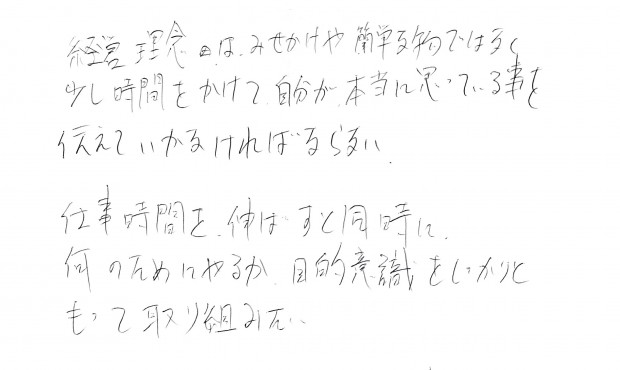 経営理念は、みせかけや簡単な物ではなく
少し時間をかけて、自分が本当に思っている事を
伝えていかなければならない、
仕事時間を、伸ばすと同時に、
何のためにやるか、目的意識をしっかりと
もって取り組みたい